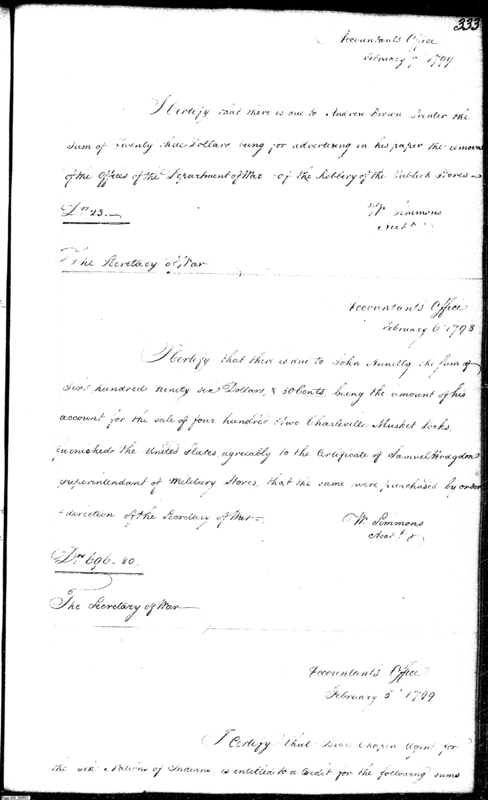 333
Accountants Office
February 7 1799
I Certify that there is due to Andrew Brown Printer the
Sum of Twenty three Dollars being for advertising in his paper the removal
of the Offices of the Department of War of the Robbery of the Publick Stores
Drs 23.
Wm Simmons
Acct
The Secretary of War
Accountants Office
February 6 1798
I Certify that there is due to John the sum of
Six hundred ninety six Dollars, & 80 Cents being the amount of his
account for the sale of four hundred two Charleville Musket Locks,
furnished the United States, agreeably to the Certificate of Samuel Hodgdon
Superintendant of Military Stores, that the same were purchased by order
direction of the Secretary of War
W. Simmons
Acct
Drs 696.80.
The Secretary of War
Accountants Office
February 5 1799
I Certify that Chapin Agent for
the Six Nations of Indians, is entitled to a Credit for the following sums